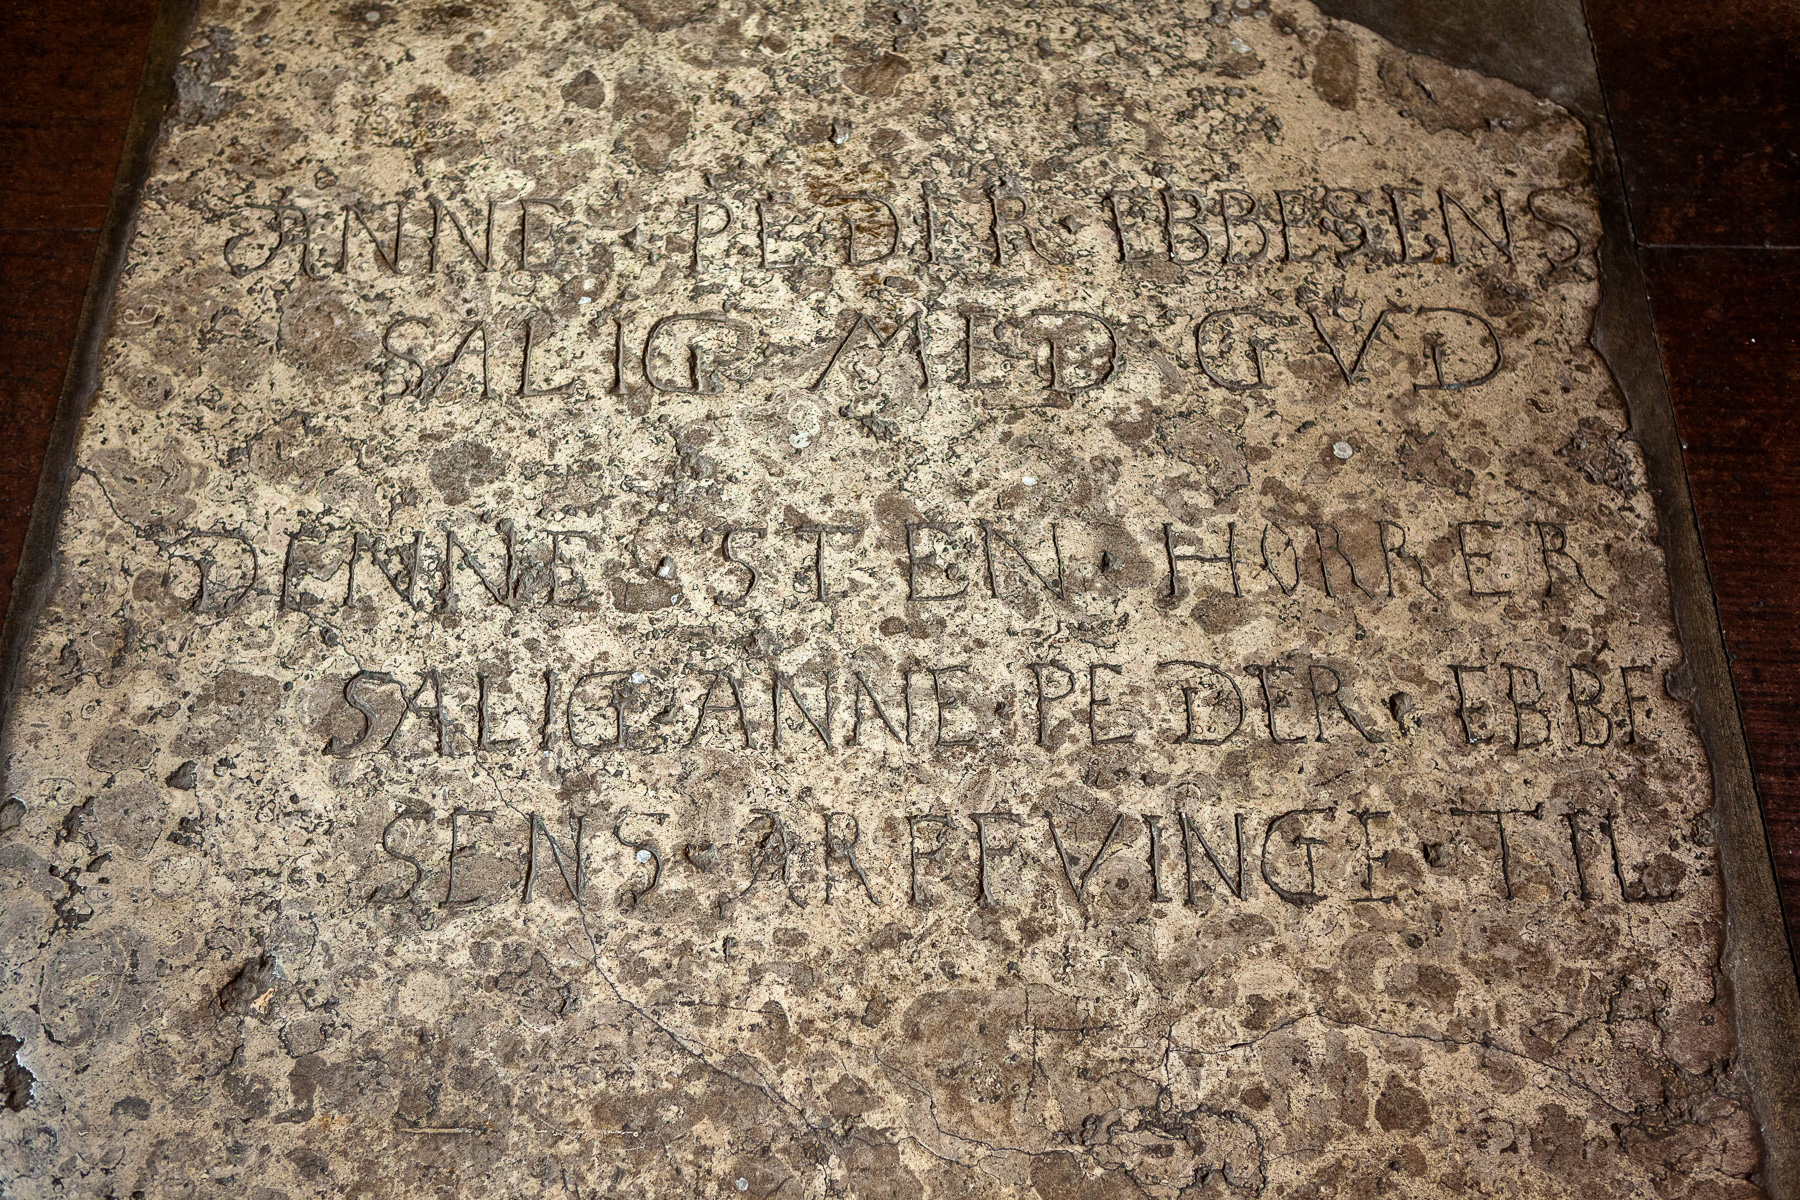 ANNE · PEDER · EBBESENS
SALIG MED GVD
DENNE STEN · HØRRER
SALIG ANNE PEDER · EBBE
SENS · ARFFVINGE · TIL